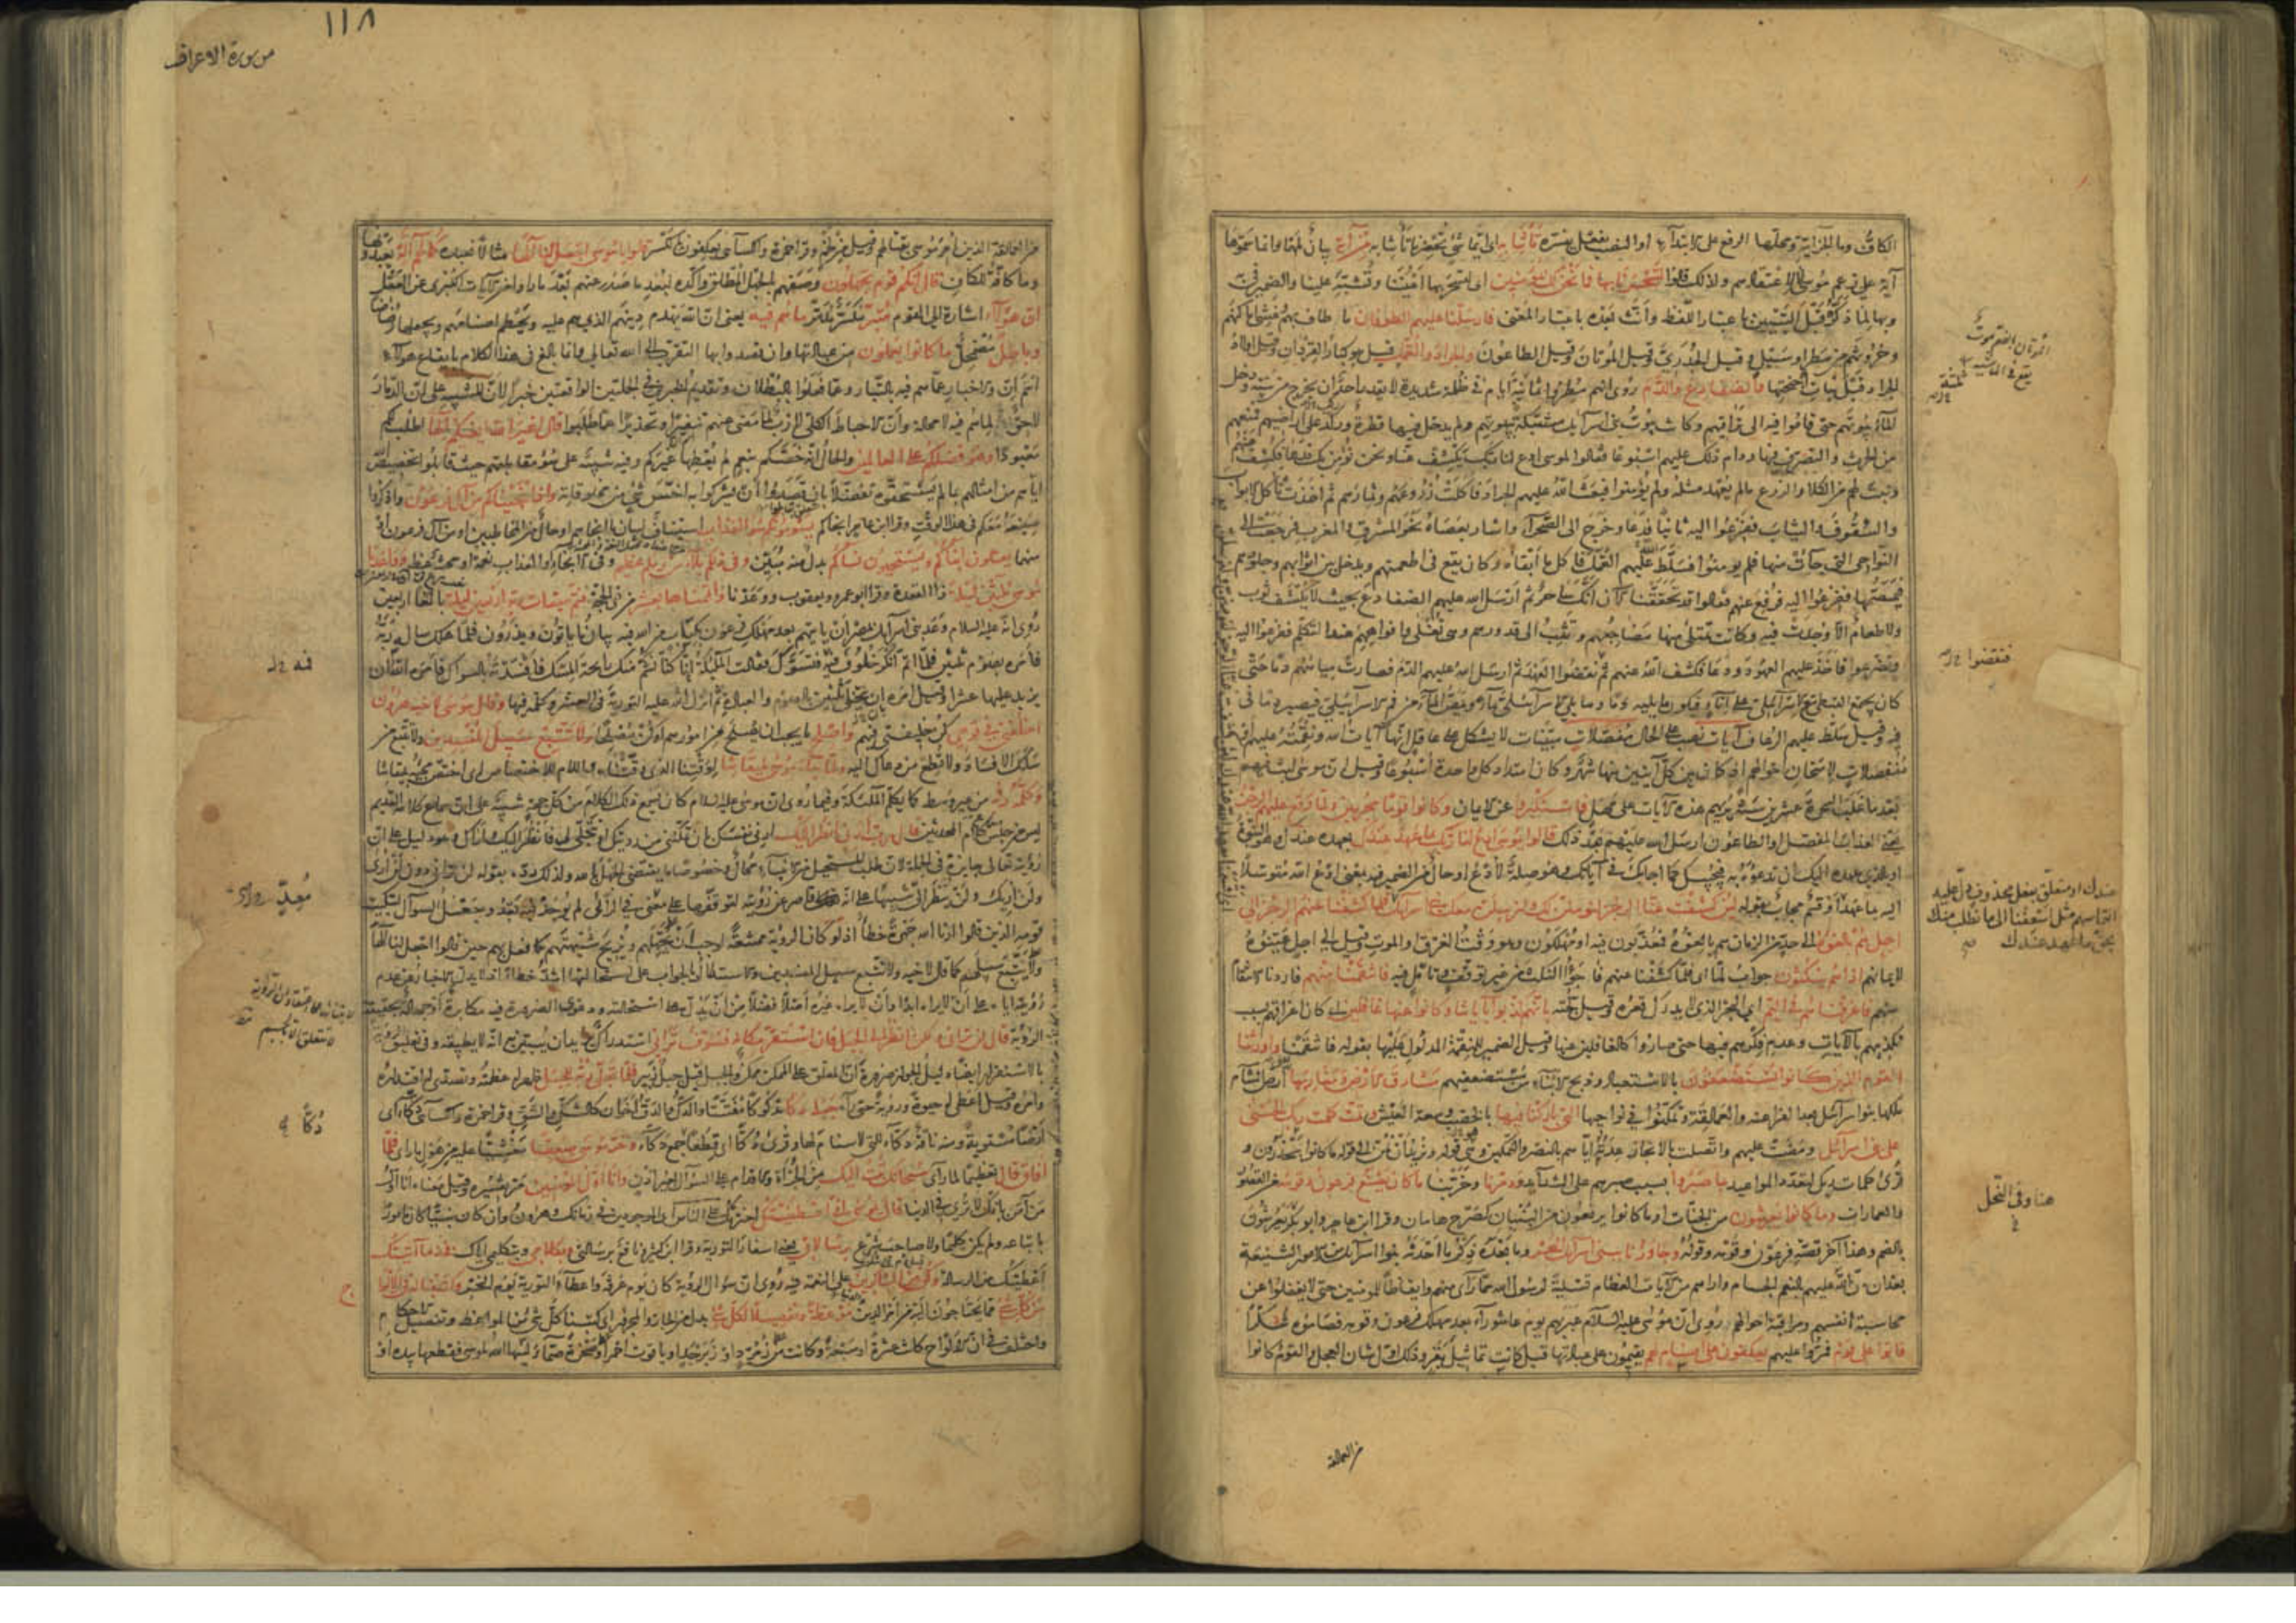 الكاف وما الجزائية ومحلها الرفع على الابتداء او النصب بفعل يفسره تأتنا به اي ايما شيء تحضرنا تأتنا به من آية بيان لمهما وانما سموها
آية على زعم موسى لا لاعتقادهم ولذلك قالوا لتسحرنا بها فما نحن لك بمؤمنين اي لتسحر بها اعيننا وتشبه علينا والضمير في به
وبها لما ذكره قبل التبيين باعتبار اللفظ وأنث بعده باعتبار المعنى فارسلنا عليهم الطوفان ما طاف بهم وغشي اماكنهم
وحروثهم من مطر او سيل وقيل الجدري وقيل الموتان وقيل الطاعون والجراد والقمل قيل هو كبار القردان وقيل اولاد
الجراد قبل نبات اجنحتها والضفادع والدم روي انهم مطروا ثمانية ايام في ظلمة شديدة لا يقدر احد ان يخرج من بيته ودخل
الماء بيوتهم حتى قاموا فيه الى تراقيهم وكانت بيوت بني اسرائيل مشتبكة ببيوتهم ولم يدخل فيها قطرة وركد على اراضيهم فمنعهم
من الحرث والتصرف فيها ودام ذلك عليهم اسبوعا فقالوا لموسى ادع لنا ربك يكشف عنا ونحن نؤمن بك فدعا فكشف عنهم
ونبت لهم من الكلأ والزرع ما لم يعهد مثله ولم يؤمنوا فبعث الله عليهم الجراد فاكلت زروعهم وثمارهم ثم اخذت تأكل الابواب
والسقوف والثياب ففزعوا اليه ثانيا فدعا وخرج الى الصحراء واشار بعصاه نحو المشرق والمغرب فرجعت الى
النواحي التي جاءت منها فلم يؤمنوا فسلط الله عليهم القمل فاكل ما ابقاه وكان يقع في اطعمتهم ويدخل بين اثوابهم وجلودهم
فيمصها ففزعوا اليه فرفع عنهم فقالوا قد تحققنا الآن انك ساحر ثم ارسل الله عليهم الضفادع بحيث لا يكشف ثوب
ولا طعام الا وجدت فيه وكانت تمتلئ منها مضاجعهم وتثب الى قدورهم وهي تغلي وافواههم عند التكلم ففزعوا اليه
وتضرعوا فاخذ عليهم العهود ودعا فكشف الله عنهم ثم نقضوا العهد ثم ارسل الله عليهم الدم فصارت مياههم دما حتى
كان يجتمع القبطي مع الاسرائيلي على اناء فيكون ما يليه دما وما يلي الاسرائيلي ماء ويمص الماء من فم الاسرائيلي فيصير دما في
فيه وقيل سلط عليهم الرعاف آيات نصب على الحال مفصلات مبينات لا يشكل على عاقل انها آيات الله ونقمته عليهم او
منفصلات لامتحان احوالهم اذ كان بين كل آيتين منها شهر وكان امتداد كل واحدة اسبوعا وقيل ان موسى لبث فيهم
بعد ما غلب السحرة عشرين سنة يريهم هذه الآيات على مهل فاستكبروا عن الايمان وكانوا قوما مجرمين ولما وقع عليهم الرجز
يعني العذاب المفصل او الطاعون ارسل الله عليهم بعد ذلك قالوا يا موسى ادع لنا ربك بما عهد عندك بعهده عندك وهو النبوة
او بالذي عهده اليك ان تدعوه به فيجيبك كما اجابك في آياتك وهو صلة لادع او حال من الضمير فيه بمعنى ادع الله متوسلا
اليه بما عهد او قسم مجاب بقوله لئن كشفت عنا الرجز لنؤمنن لك ولنرسلن معك بني اسرائيل فلما كشفنا عنهم الرجز الى
اجل هم بالغوه الى حد من الزمان هم بالغوه فمعذبون فيه او مهلكون وهو وقت الغرق او الموت وقيل الى اجل عينوه
لايمانهم اذا هم ينكثون جواب لما اي فلما كشفنا عنهم فاجؤا النكث من غير توقف وتأمل فيه فانتقمنا منهم فاردنا الانتقام
منهم فاغرقناهم في اليم اي البحر الذي لا يدرك قعره وقيل لجته بانهم كذبوا بآياتنا وكانوا عنها غافلين اي كان اغراقهم بسبب
تكذيبهم بالآيات وعدم فكرهم فيها حتى صاروا كالغافلين عنها وقيل الضمير للنقمة المدلول عليها بقوله فانتقمنا واورثنا
القوم الذين كانوا يستضعفون بالاستعباد وذبح الابناء من مستضعفيهم مشارق الارض ومغاربها ارض الشام
ملكها بنو اسرائيل بعد الفراعنة والعمالقة وتمكنوا في نواحيها التي باركنا فيها بالخصب وسعة العيش وتمت كلمت ربك الحسنى
على بني اسرائيل ومضت عليهم واتصلت بالانجاز عدته اياهم بالنصر والتمكين وهي قوله ونريد ان نمن الى قوله ما كانوا يحذرون و
قرئ كلمات ربك لتعدد المواعيد بما صبروا بسبب صبرهم على الشدائد ودمرنا وخربنا ما كان يصنع فرعون وقومه من القصور
والعمارات وما كانوا يعرشون من الجنات او ما كانوا يرفعون من البنيان كصرح هامان وقرا ابن عامر وابو بكر يعرشون
بالضم وهذا آخر قصة فرعون وقومه وقوله وجاوزنا ببني اسرائيل البحر وما بعده ذكر ما احدثه بنو اسرائيل من الامور الشنيعة
بعد ان من الله عليهم بالنعم الجسام واراهم من الآيات العظام تسلية لرسول الله مما رأى منهم وايقاظا للمؤمنين حتى لا يغفلوا عن
محاسبة انفسهم ومراقبة احوالهم روي ان موسى عليه السلام عبر بهم يوم عاشوراء بعد مهلك فرعون وقومه فصاموه شكرا
فاتوا على قوم فمروا عليهم يعكفون على اصنام لهم يقيمون على عبادتها قيل كانت تماثيل بقر وذلك اول شأن العجل والقوم كانوا
من العمالقة
الموتان بالضم موت
يقع في الماشية
فنقضوا
عندك او متعلق بفعل محذوف دل عليه
التماسهم مثل اسعفنا الى ما نطلب منك
بحق ما عهد عندك
هنا وفي النحل
١١٨
من سورة الاعراف
من العمالقة الذين امر موسى بقتالهم وقيل من لخم وقرا حمزة والكسائي يعكفون بالكسر قالوا يا موسى اجعل لنا الها مثالا نعبده كما لهم آلهة يعبدونها
وما كافة للكاف قال انكم قوم تجهلون وصفهم بالجهل المطلق واكده لبعد ما صدر عنهم بعد ما رأوا من الآيات الكبرى عن العقل
ان هؤلاء اشارة الى القوم متبر مكسر مدمر ما هم فيه يعني ان الله يهدم دينهم الذي هم عليه ويحطم اصنامهم ويجعلها رضاضا
وباطل مضمحل ما كانوا يعملون من عبادتها وان قصدوا بها التقرب الى الله تعالى وانما بالغ في هذا الكلام بايقاع هؤلاء
اسم ان والاخبار عما هم فيه بالتبار وعما فعلوا بالبطلان وتقديم الخبرين في الجملتين الواقعتين خبرا لان للتنبيه على ان الدمار
لاحق لما هم فيه لا محالة وان الاحباط الكلي لازب لما مضى عنهم تنفيرا وتحذيرا عما طلبوا قال اغير الله ابغيكم الها اطلب لكم
معبودا وهو فضلكم على العالمين والحال انه خصكم بنعم لم يعطها غيركم وفيه تنبيه على سوء مقابلتهم حيث قابلوا تخصيص الله
اياهم من امثالهم بما لم يستحقوه تفضلا بان قصدوا ان يشركوا به اخس شيء من مخلوقاته واذ انجيناكم من آل فرعون واذكروا
صنيعه معكم في هذا الوقت وقرا ابن عامر انجاكم يسومونكم سوء العذاب استيناف لبيان ما انجاهم او حال من المخاطبين او من آل فرعون او
منهما يقتلون ابناءكم ويستحيون نساءكم بدل منه مبين وفي ذلكم بلاء من ربكم عظيم وفي الانجاء او العذاب نعمة او محنة عظيمة وواعدنا
موسى ثلثين ليلة ذا القعدة وقرا ابو عمرو ويعقوب ووعدنا واتممناها بعشر من ذي الحجة فتم ميقات ربه اربعين ليلة بالغا اربعين
روي انه عليه السلام وعد بني اسرائيل بمصر ان يأتيهم بعد مهلك فرعون بكتاب من الله فيه بيان ما يأتون ويذرون فلما هلك سأل ربه
فامره بصوم ثلثين فلما اتم انكر خلوف فيه فتسوك فقالت الملئكة انا كنا نشم منك رائحة المسك فافسدته بالسواك فامره الله ان
يزيد عليها عشرا وقيل امره بان يتخلى ثلثين بالصوم والعبادة ثم انزل الله عليه التورية في العشر وكلمه فيها وقال موسى لاخيه هرون
اخلفني في قومي كن خليفتي فيهم واصلح ما يجب ان يصلح من امورهم او كن مصلحا ولا تتبع سبيل المفسدين ولا تتبع من
سلك الافساد ولا تطع من دعاك اليه ولما جاء موسى لميقاتنا لوقتنا الذي وقتناه واللام للاختصاص اي اختص مجيئه بميقاتنا
وكلمه ربه من غير وسط كما يكلم الملئكة وفيما روي ان موسى عليه السلام كان يسمع ذلك الكلام من كل جهة تنبيه على ان سماع كلامه القديم
ليس من جنس كلام المحدثين قال رب ارني انظر اليك ارني نفسك بان تمكنني من رؤيتك او تتجلى لي فانظر اليك واراك وهو دليل على ان
رؤيته تعالى جائزة في الجملة لان طلب المستحيل من الانبياء محال وخصوصا ما يقتضي الجهل بالله ولذلك رده بقوله لن تراني دون لن ارى
ولن اريك ولن تنظر الي تنبيها على انه قاصر عن رؤيته لتوقفها على معنى في الرائي لم يوجد فيه بعد وجعل السؤال لتبكيت
قومه الذين قالوا ارنا الله جهرة خطأ اذ لو كانت الرؤية ممتنعة لوجب ان يجهلهم ويزيح شبهتهم كما فعل بهم حين قالوا اجعل لنا الها
ولا يتبع سبيلهم كما قال لاخيه ولا تتبع سبيل المفسدين والاستدلال بالجواب على استحالتها اشد خطأ اذ لا يدل الاخبار عن عدم
رؤيته اياه على ان لا يراه ابدا وان لا يراه غيره اصلا فضلا من ان يدل على استحالته ودعوى الضرورة فيه مكابرة او جهالة بحقيقة
الرؤية قال لن تراني ولكن انظر الى الجبل فان استقر مكانه فسوف تراني استدراك يريد ان يبين به انه لا يطيقه وفي تعليق الرؤية
بالاستقرار ايضا دليل للجواز ضرورة ان المعلق على الممكن ممكن والجبل قيل جبل زبير فلما تجلى ربه للجبل ظهر له عظمته وتصدى له اقتداره
وامره وقيل اعطي له حيوة ورؤية حتى رآه جعله دكا مدكوكا مفتتا والدك والدق اخوان كالشك والشق وقرا حمزة والكسائي دكاء اي
ارضا مستوية ومنه ناقة دكاء للتي لا سنام لها وقرئ دكا اي قطعا جمع دكاء وخر موسى صعقا مغشيا عليه من هول ما رأى فلما
افاق قال تعظيما لما رأى سبحانك تبت اليك من الجرأة والاقدام على السؤال بغير اذن وانا اول المؤمنين مر تفسيره وقيل معناه انا اول
من آمن بانك لا ترى في الدنيا قال يا موسى اني اصطفيتك اخترتك على الناس اي الموجودين في زمانك وهرون وان كان نبيا كان مأمورا
باتباعه ولم يكن كليما ولا صاحب شرع برسالاتي يعني اسفار التورية وقرا ابن كثير ونافع برسالتي وبكلامي وبتكليمي اياك فخذ ما آتيتك
اعطيتك من الرسالة وكن من الشاكرين على النعمة فيه روي ان سؤال الرؤية كان يوم عرفة واعطاء التورية يوم النحر وكتبنا له في الالواح
من كل شيء مما يحتاجون اليه من امر الدين موعظة وتفصيلا لكل شيء بدل من الجار والمجرور اي كتبنا كل شيء من المواعظ وتفصيل الاحكام
واختلف في ان الالواح كانت عشرة او سبعة وكانت من زمرد او زبرجد او ياقوت احمر او صخرة صماء لينها الله لموسى فقطعها بيده او
فيه
دكا